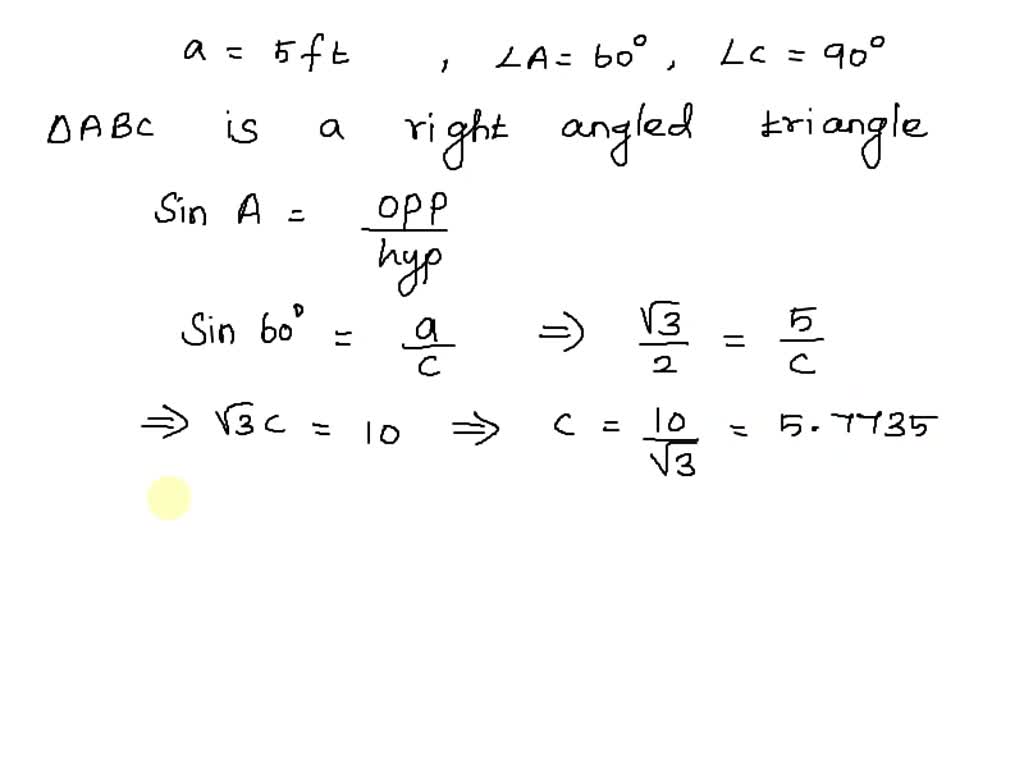 a = 5ft , ∠A = 60°, ∠C = 90°
ΔABC is a right angled triangle
Sin A = opp/hyp
Sin 60° = a/c ⇒ √3/2 = 5/c
⇒ √3c = 10 ⇒ c = 10/√3 = 5.7735